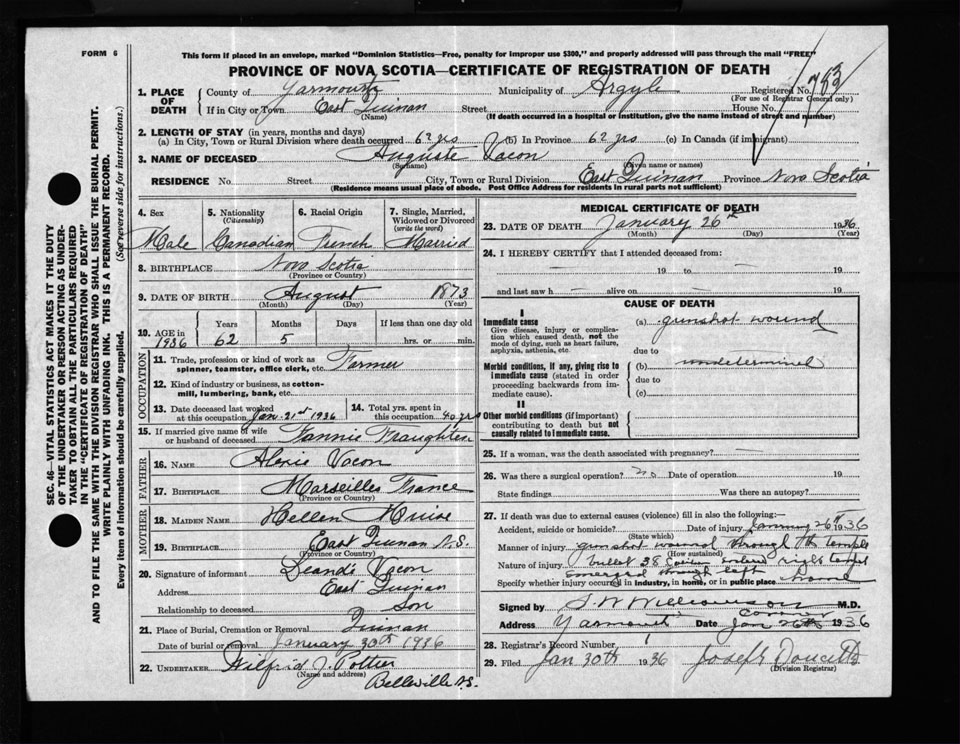 FORM 6
This form if placed in an envelope, marked "Dominion Statistics—Free, penalty for improper use $300," and properly addressed will pass through the mail "FREE"
PROVINCE OF NOVA SCOTIA—CERTIFICATE OF REGISTRATION OF DEATH
1. PLACE OF DEATH
County of Yarmouth Municipality of Argyle Registered No. 783
(For use of Registrar General only)
If in City or Town East Quinan Street House No.
(Name) (If death occurred in a hospital or institution, give the name instead of street and number)
2. LENGTH OF STAY (in years, months and days)
(a) In City, Town or Rural Division where death occurred 62 yrs (b) In Province 62 yrs (c) In Canada (if immigrant)
3. NAME OF DECEASED Auguste Vacon
(Surname) (Given name or names)
RESIDENCE No. Street City, Town or Rural Division East Quinan Province Nova Scotia
(Residence means usual place of abode. Post Office Address for residents in rural parts not sufficient)
4. Sex
Male
5. Nationality (Citizenship)
Canadian
6. Racial Origin
French
7. Single, Married, Widowed or Divorced (write the word)
Married
8. BIRTHPLACE Nova Scotia
(Province or Country)
9. DATE OF BIRTH August 1873
(Month) (Day) (Year)
10. AGE in 1936
Years Months Days If less than one day old
62 5 hrs. or min.
OCCUPATION
11. Trade, profession or kind of work as spinner, teamster, office clerk, etc. Farmer
12. Kind of industry or business, as cotton-mill, lumbering, bank, etc.
13. Date deceased last worked at this occupation Jan. 21st 1936
14. Total yrs. spent in this occupation 40 yrs
15. If married give name of wife or husband of deceased Fannie Fraughten
FATHER
16. NAME Alexie Vacon
17. BIRTHPLACE Marseilles France
(Province or Country)
MOTHER
18. MAIDEN NAME Hellen Muise
19. BIRTHPLACE East Quinan N.S.
(Province or Country)
20. Signature of informant Leandé Vacon
Address East Quinan
Relationship to deceased Son
21. Place of Burial, Cremation or Removal Quinan
Date of burial or removal January 30th 1936
22. UNDERTAKER Wilfrid J. Pottier
(Name and address)
Belleville N.S.
MEDICAL CERTIFICATE OF DEATH
23. DATE OF DEATH January 26th 1936
(Month) (Day) (Year)
24. I HEREBY CERTIFY that I attended deceased from:
— 19 to — 19
and last saw h — alive on — 19
CAUSE OF DEATH
I
Immediate cause (a) gunshot wound
Give disease, injury or complication which caused death, not the mode of dying, such as heart failure, asphyxia, asthenia, etc.
due to
Morbid conditions, if any, giving rise to immediate cause (stated in order proceeding backwards from immediate cause). (b) undetermined
due to
(c)
II
Other morbid conditions (if important) contributing to death but not causally related to immediate cause.
25. If a woman, was the death associated with pregnancy? —
26. Was there a surgical operation? no Date of operation 19
State findings Was there an autopsy?
27. If death was due to external causes (violence) fill in also the following:—
Accident, suicide or homicide? Date of injury January 26th 1936
(State which)
Manner of injury gunshot wound through the temple
(How sustained)
Nature of injury bullet 38 entered right temple
emerged through left
Specify whether injury occurred in industry, in home, or in public place home
Signed by S. W. Williamson M.D.
Coroner
Address Yarmouth Date Jan 26th 1936
28. Registrar's Record Number 1
29. Filed Jan 30th 1936 Joseph Doucette
(Division Registrar)
SEC. 46—VITAL STATISTICS ACT MAKES IT THE DUTY
OF THE UNDERTAKER OR PERSON ACTING AS UNDER-
TAKER TO OBTAIN ALL THE PARTICULARS REQUIRED
IN THE "CERTIFICATE OF REGISTRATION OF DEATH"
AND TO FILE THE SAME WITH THE DIVISION REGISTRAR WHO SHALL ISSUE THE BURIAL PERMIT.
WRITE PLAINLY WITH UNFADING INK. THIS IS A PERMANENT RECORD.
Every item of information should be carefully supplied. (See reverse side for instructions.)